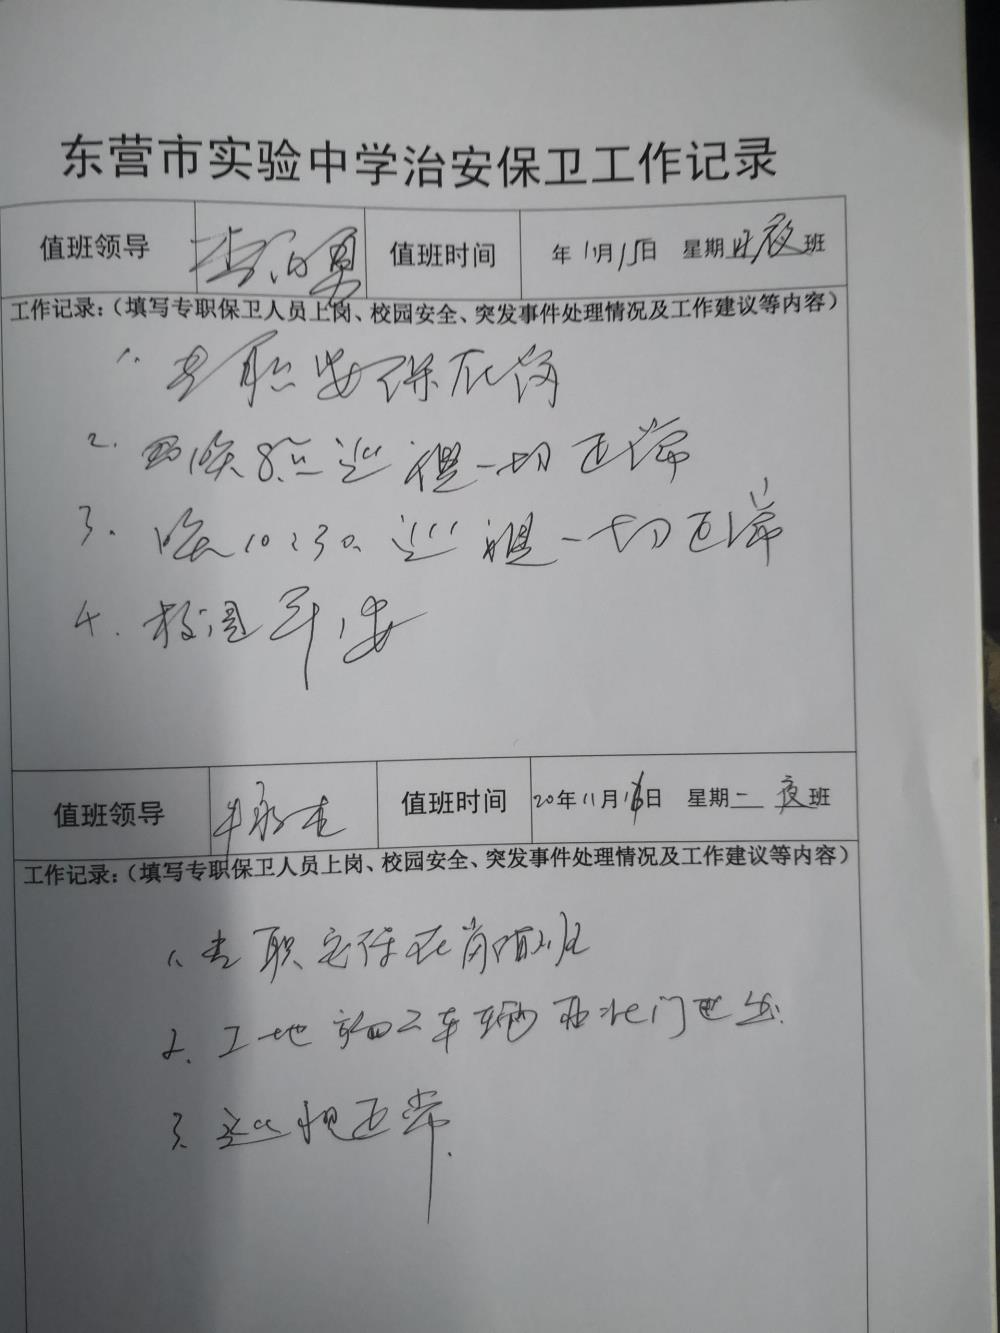 东营市实验中学治安保卫工作记录
值班领导 李 勇 值班时间 年 11月15日 星期 夜班
工作记录：（填写专职保卫人员上岗、校园安全、突发事件处理情况及工作建议等内容）
1. 专职安保在岗
2. 晚8点巡视一切正常
3. 晚10:30巡视一切正常
4. 校园平安
值班领导 值班时间 20年11月16日 星期二 夜班
工作记录：（填写专职保卫人员上岗、校园安全、突发事件处理情况及工作建议等内容）
1. 专职安保在岗
2. 工地施工车辆西北门进出.
3. 巡视正常.